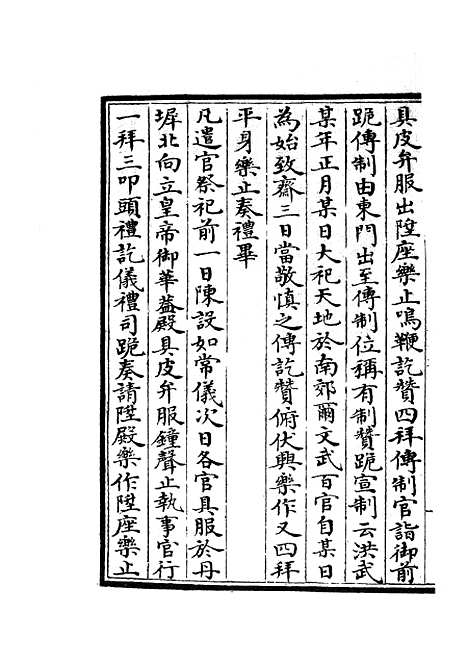 具皮弁服出陞座樂止鳴鞭訖贊四拜傳制官詣御前
跪傳制由東門出至傳制位稱有制贊跪宣制云洪武
某年正月某日大祀天地於南郊爾文武百官自某日
為始致齋三日當敬慎之傳訖贊俯伏興樂作又四拜
平身樂止奏禮畢
凡遣官祭祀前一日陳設如常儀次日各官具服於丹
墀北向立皇帝御華蓋殿具皮弁服鐘聲止執事官行
一拜三叩頭禮訖儀禮司跪奏請陞殿樂作陞座樂止